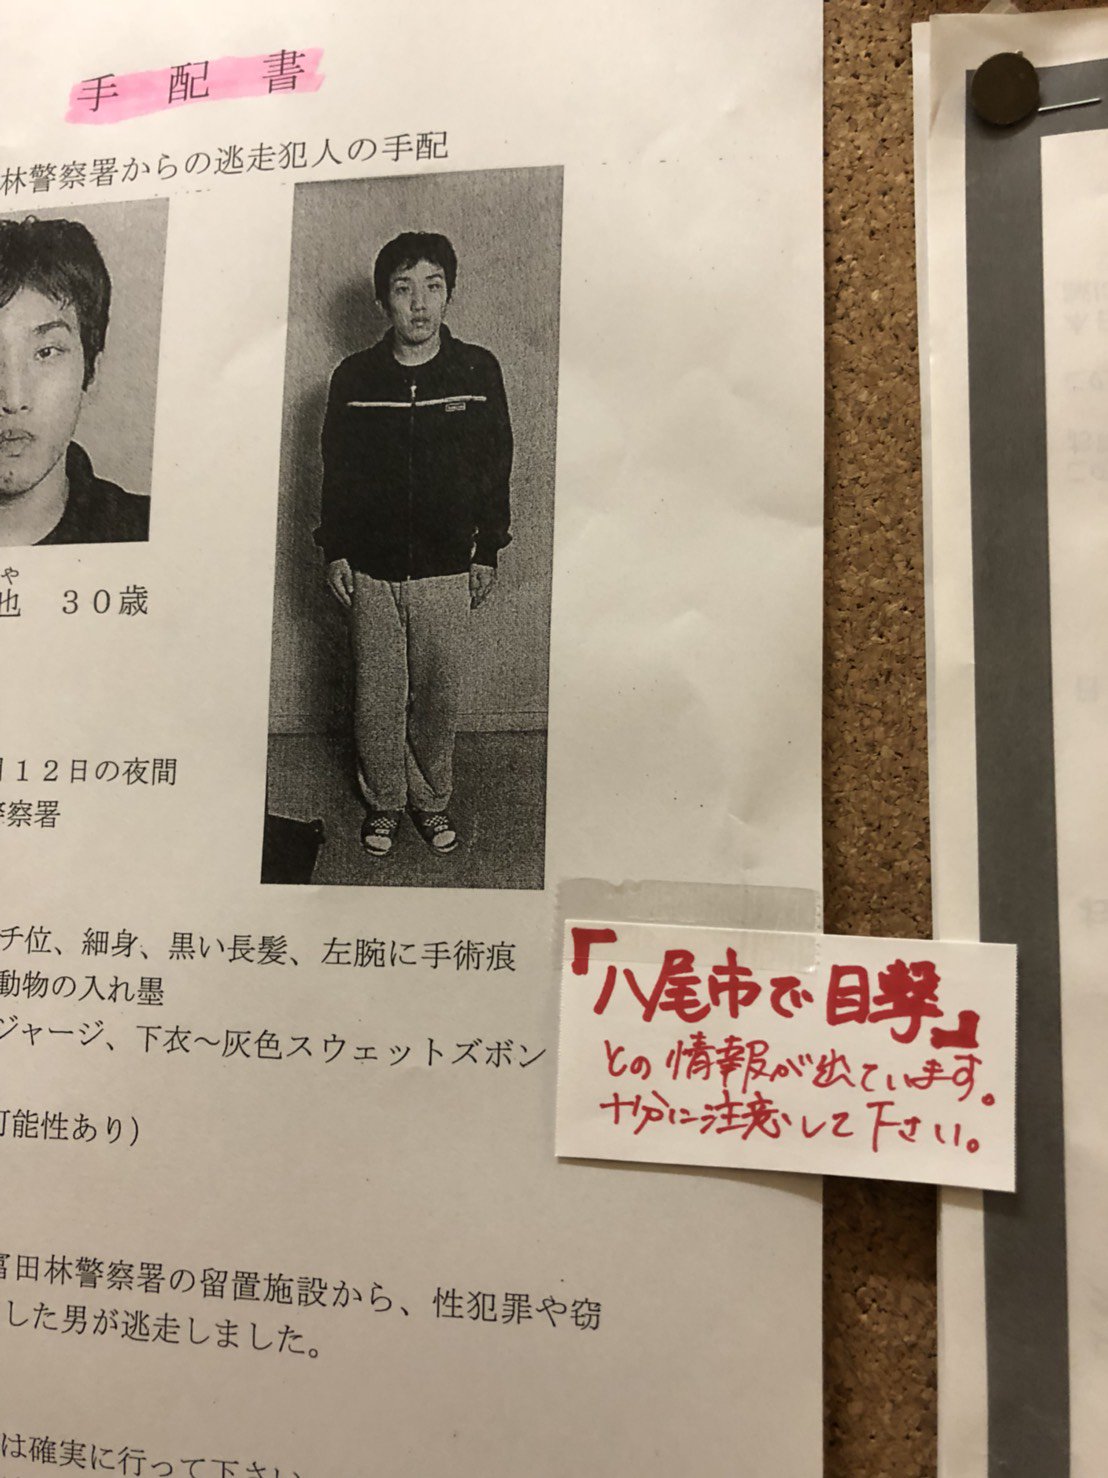 手配書
林警察署からの逃走犯人の手配
や
也 30歳
12日の夜間
察署
チ位、細身、黒い長髪、左腕に手術痕
動物の入れ墨
ジャージ、下衣～灰色スウェットズボン
可能性あり)
「八尾市で目撃」
との情報が出ています。
十分に注意して下さい。
富田林警察署の留置施設から、性犯罪や窃
した男が逃走しました。
は確実に行って下さい